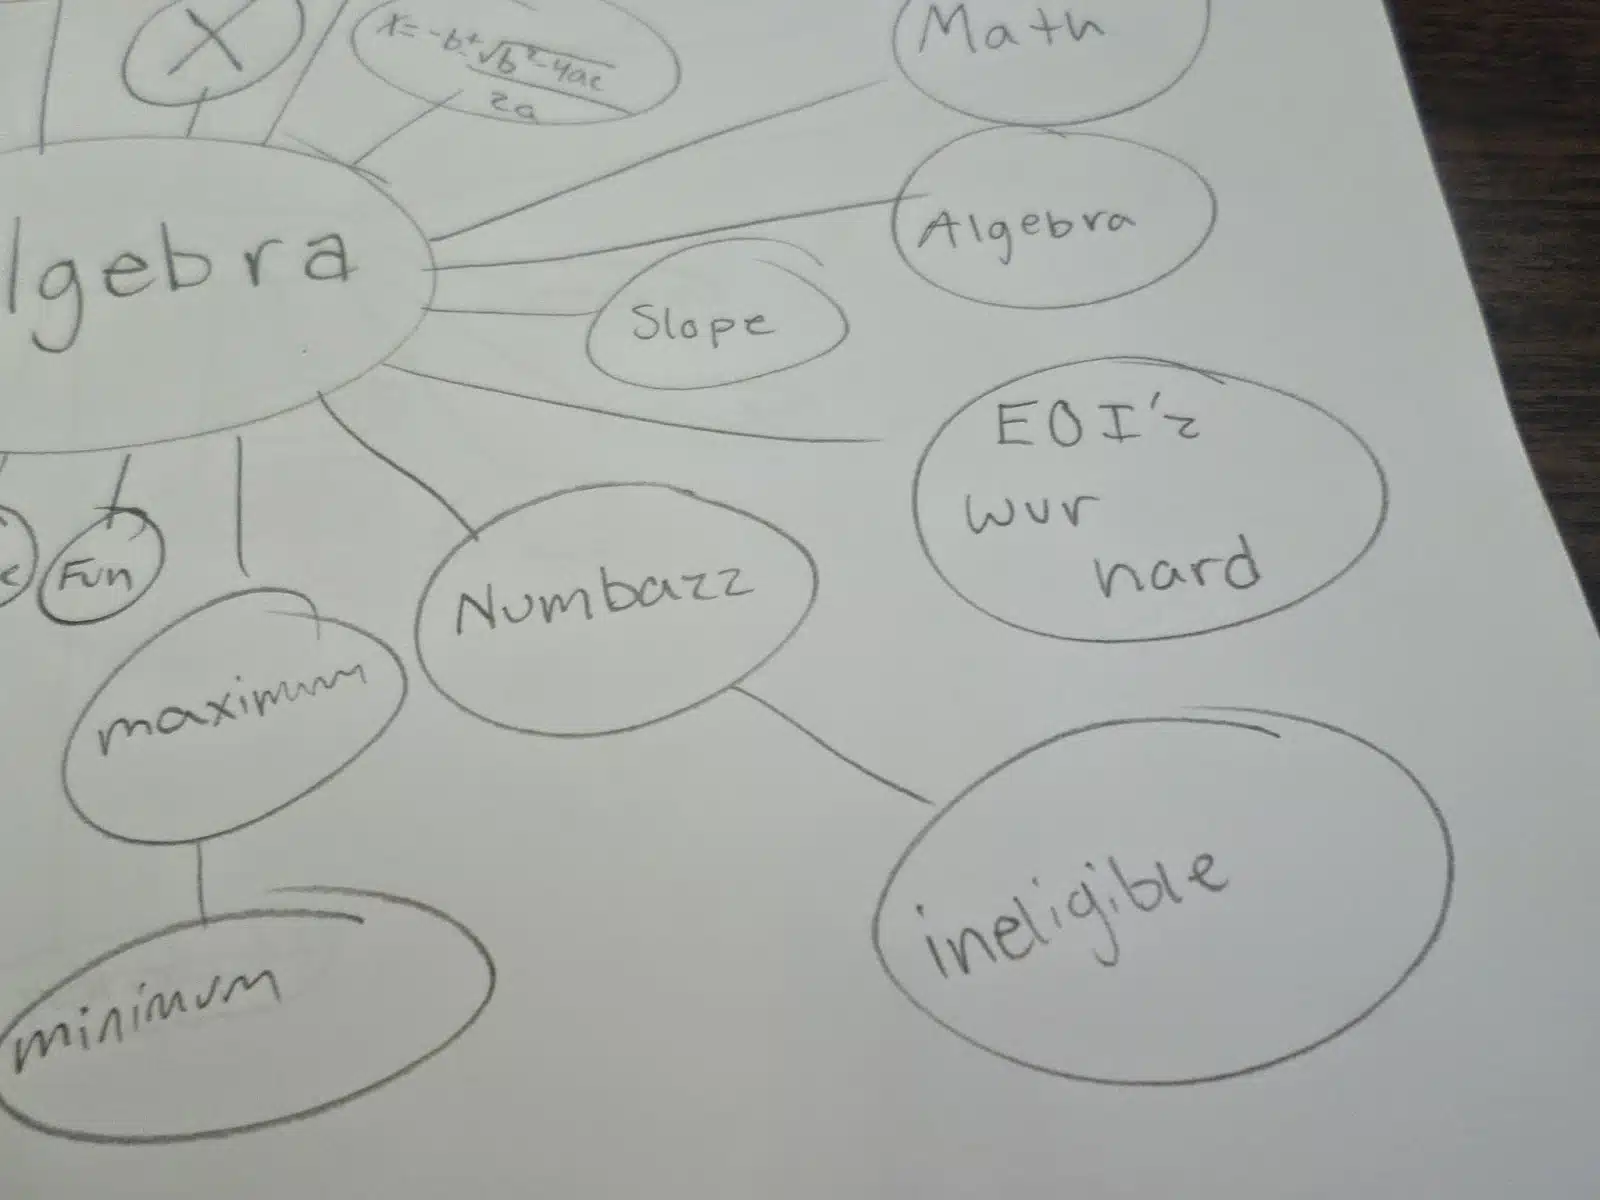 X
x = -b ± √b² - 4ac
2a
Math
lgebra
Algebra
Slope
EOI'z
wur
hard
Fun
Numbazz
maximum
ineligible
minimum